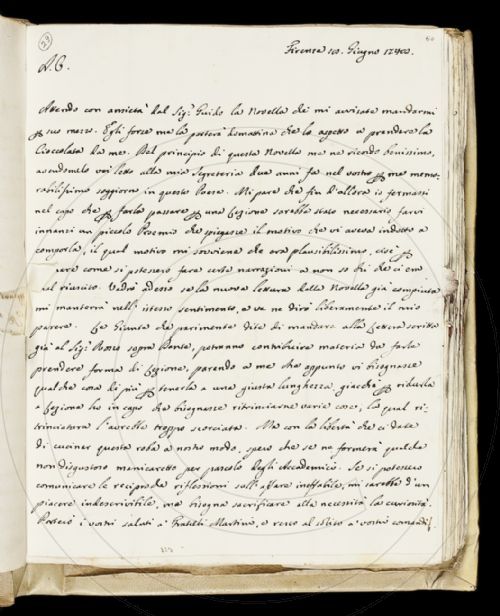 23
60
Firenze 10. Giugno
A. C.
Attendo con ansietà dal Sig.r Guido la Novella che mi avvisate mandarmi
suo mezzo. Egli forse me la porterà domattina che lo aspetto a prendere la
Cioccolata da me. Del principio di questa Novella me ne ricordo benissimo,
avendomelo voi letto alla mia Segreteria due anni fa nel vostro me memo-
rabilissimo soggiorno in questo Paese. Mi pare che fin d'allora io fermassi
nel capo che farla passare una Lezione sarebbe stato necessario farvi
innanzi un piccolo Proemio che spiegasse il motivo che vi aveva indotto a
comporla, il qual motivo mi sovviene che era plausibilissimo, cioè
come si potessero fare certe narrazioni a non so chi che ci era
mal riuscito. Vedrò adesso se la nuova lettura della Novella già compiuta
mi manterrà nell'istesso sentimento, e ve ne dirò liberamente il mio
parere. Le Giunte che parimente dite di mandare alla Lettera scritta
già al Sig.r Rosso sopra Dante, potranno contribuire materia da farle
prendere forma di Lezione, parendo a me che appunto vi bisognasse
qualche cosa di più tenerla a una giusta lunghezza, giacchè ridurla
a Lezione ho in capo che bisognasse ritrinciarne varie cose, la qual ri-
trinciatura l'avrebbe troppo scorciata. Ma con la libertà che ci date
di cucinar questa roba a nostro modo, spero che se ne formerà qualche
non disgustoso manicaretto per pascolo degli Accademici. Se si potessero
comunicare le reciproche riflessioni sull'affare ineffabile, mi sarebbe d'un
piacere indescrivibile, ma bisogna sacrificare alla necessità la curiosità.
Porterò i vostri saluti a Fratelli Martini, e resto al solito a vostri comandi.